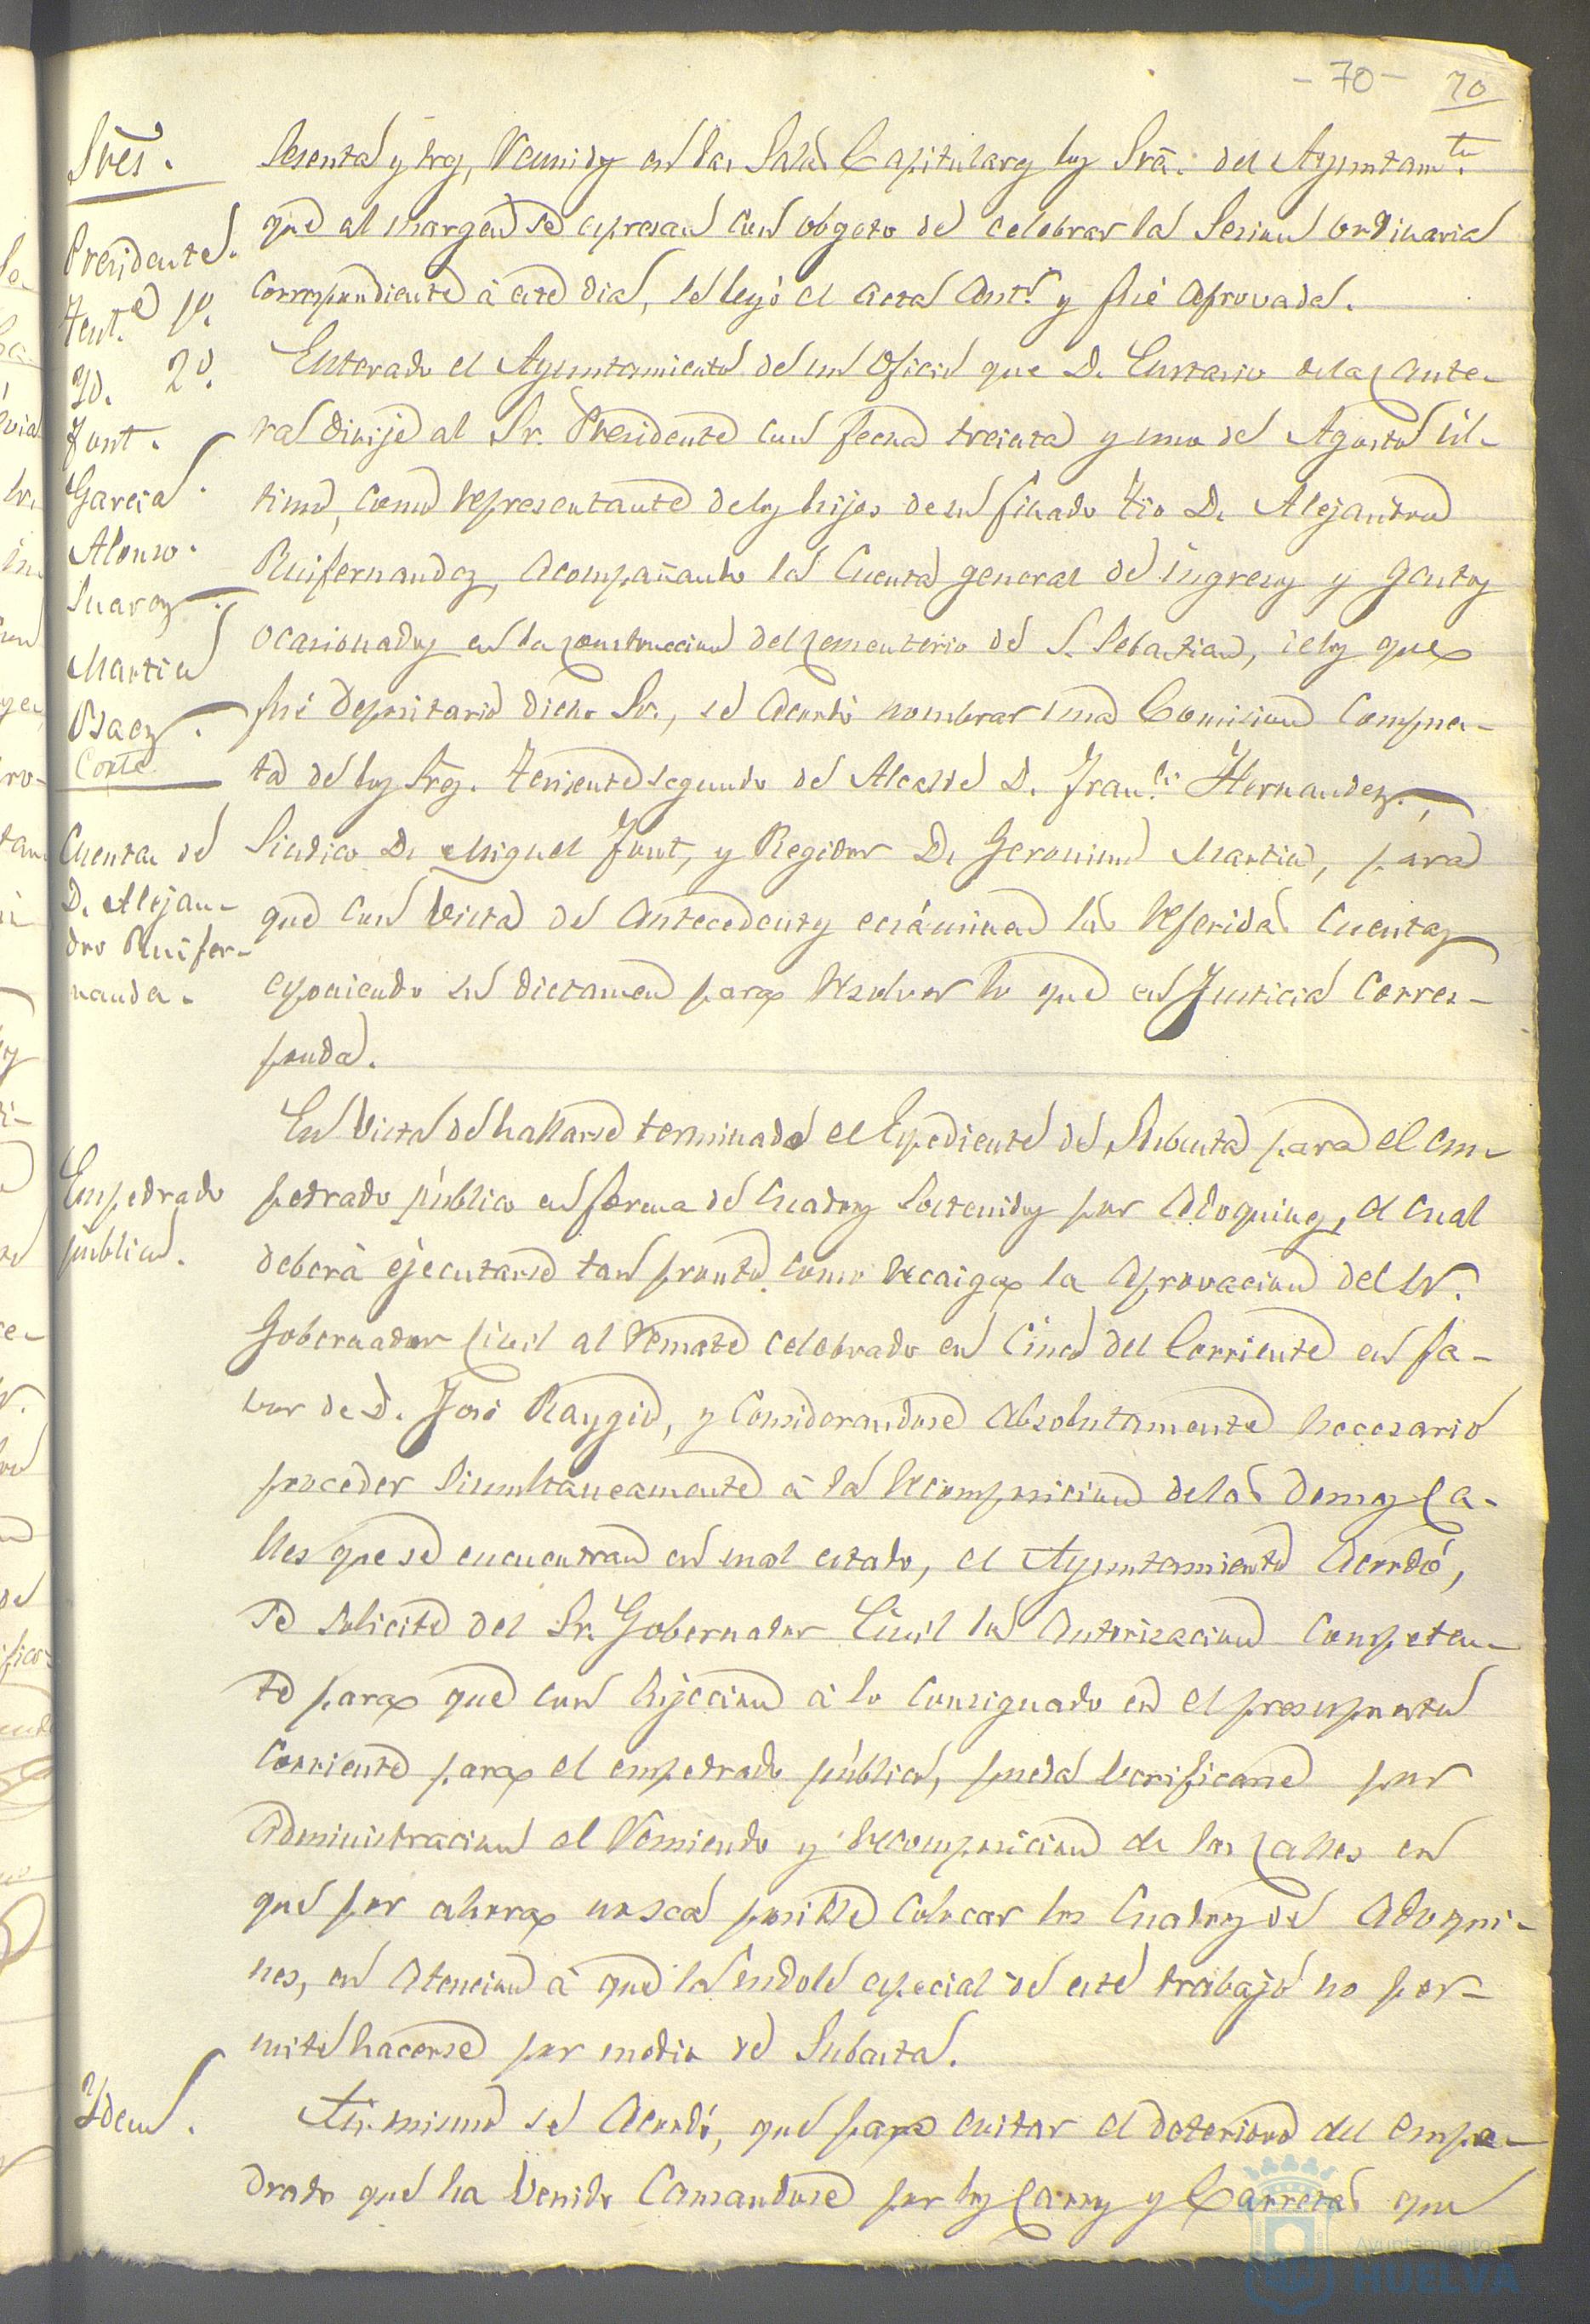 - 70 -
70
Sres.
Presidente.
Tent.e 1º.
Yd. 2º.
Font.
Garcia.
Alonso.
Suarez.
Martin
Baez.
Conte
Cuentas de
D. Alejan-
dro Ruifer-
nandez.
Empedrado
público.
Ydem.
sesenta y tres, reunidos en las Salas Capitulares los Sres. del Ayuntamto.
que al margen se expresan con obgeto de celebrar la Sesion ordinaria
correspondiente á este dia, se leyó el acta antr. y fué aprovada.
Enterado el Ayuntamiento de un oficio que D. Eustasio de la Cante-
ra dirije al Sr. Presidente con fecha treinta y uno de Agosto úl-
timo, como representante de los hijos de su finado tio D. Alejandro
Ruifernandez, acompañando la cuenta general de ingresos y gastos
ocasionados en la construccion del Cementerio de S. Sebastian, de los que
fué depositario dicho Sr., se acordó nombrar una Comision compues-
ta de los Sres. Teniente segundo de Alcalde D. Franco. Hernandez,
Sindico D. Miguel Font, y Regidor D. Geronimo Martin, para
que con vista de antecedentes ecsáminen las referidas cuentas
esponiendo su dictamen para resolver lo que en Justicia corres-
ponda.
En vista de hallarse terminado el Espediente de Subasta para el em-
pedrado público en forma de cuadros sostenidos por adoquines, el cual
deberá ejecutarse tan pronto como recaiga la aprovacion del Sr.
Gobernador Civil al remate celebrado en cinco del corriente en fa-
vor de D. José Raygid, y considerandose absolutamente necesario
proceder simultaneamente á la recomposicion de las demas ca-
lles que se encuentran en mal estado, el Ayuntamiento acordó,
se solicite del Sr. Gobernador Civil la autorizacion competen-
te para que con sujecion á lo consignado en el presupuesto
corriente para el empedrado público, pueda verificarse por
administracion el remiendo y recomposicion de las calles en
que por ahora no sea posible colocar los cuadros de adoqui-
nes, en atencion á que la índole especial de este trabajo no per-
mite hacerse por medio de Subasta.
Asi mismo se acordó, que para evitar el deterioro del empe-
drado que ha venido causandose por los carros y carretas que
Ayuntamiento de
HUELVA